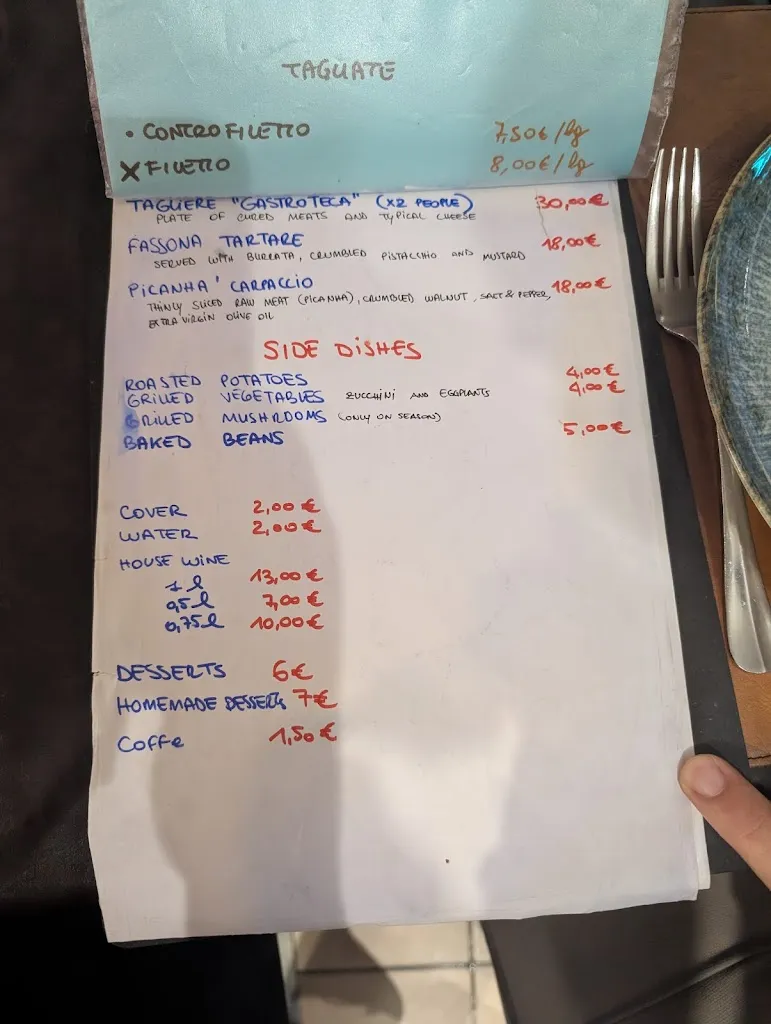 TAGLIATE
• CONTROFILETTO 7,50€/hg
X FILETTO 8,00€/hg
TAGLIERE "GASTROTECA" (x2 PEOPLE) 30,00€
PLATE OF CURED MEATS AND TYPICAL CHEESE
FASSONA TARTARE 18,00€
SERVED WITH BURRATA, CRUMBLED PISTACCHIO AND MUSTARD
PICANHA' CARPACCIO 18,00€
THINLY SLICED RAW MEAT (PICANHA), CRUMBLED WALNUT, SALT & PEPPER,
EXTRA VIRGIN OLIVE OIL
SIDE DISHES
ROASTED POTATOES 4,00€
GRILLED VEGETABLES ZUCCHINI AND EGGPLANTS 4,00€
GRILLED MUSHROOMS (ONLY ON SEASON)
BAKED BEANS 5,00€
COVER 2,00€
WATER 2,00€
HOUSE WINE
1 l 13,00€
0,5 l 7,00€
0,75 l 10,00€
DESSERTS 6€
HOMEMADE DESSERTS 7€
COFFE 1,50€